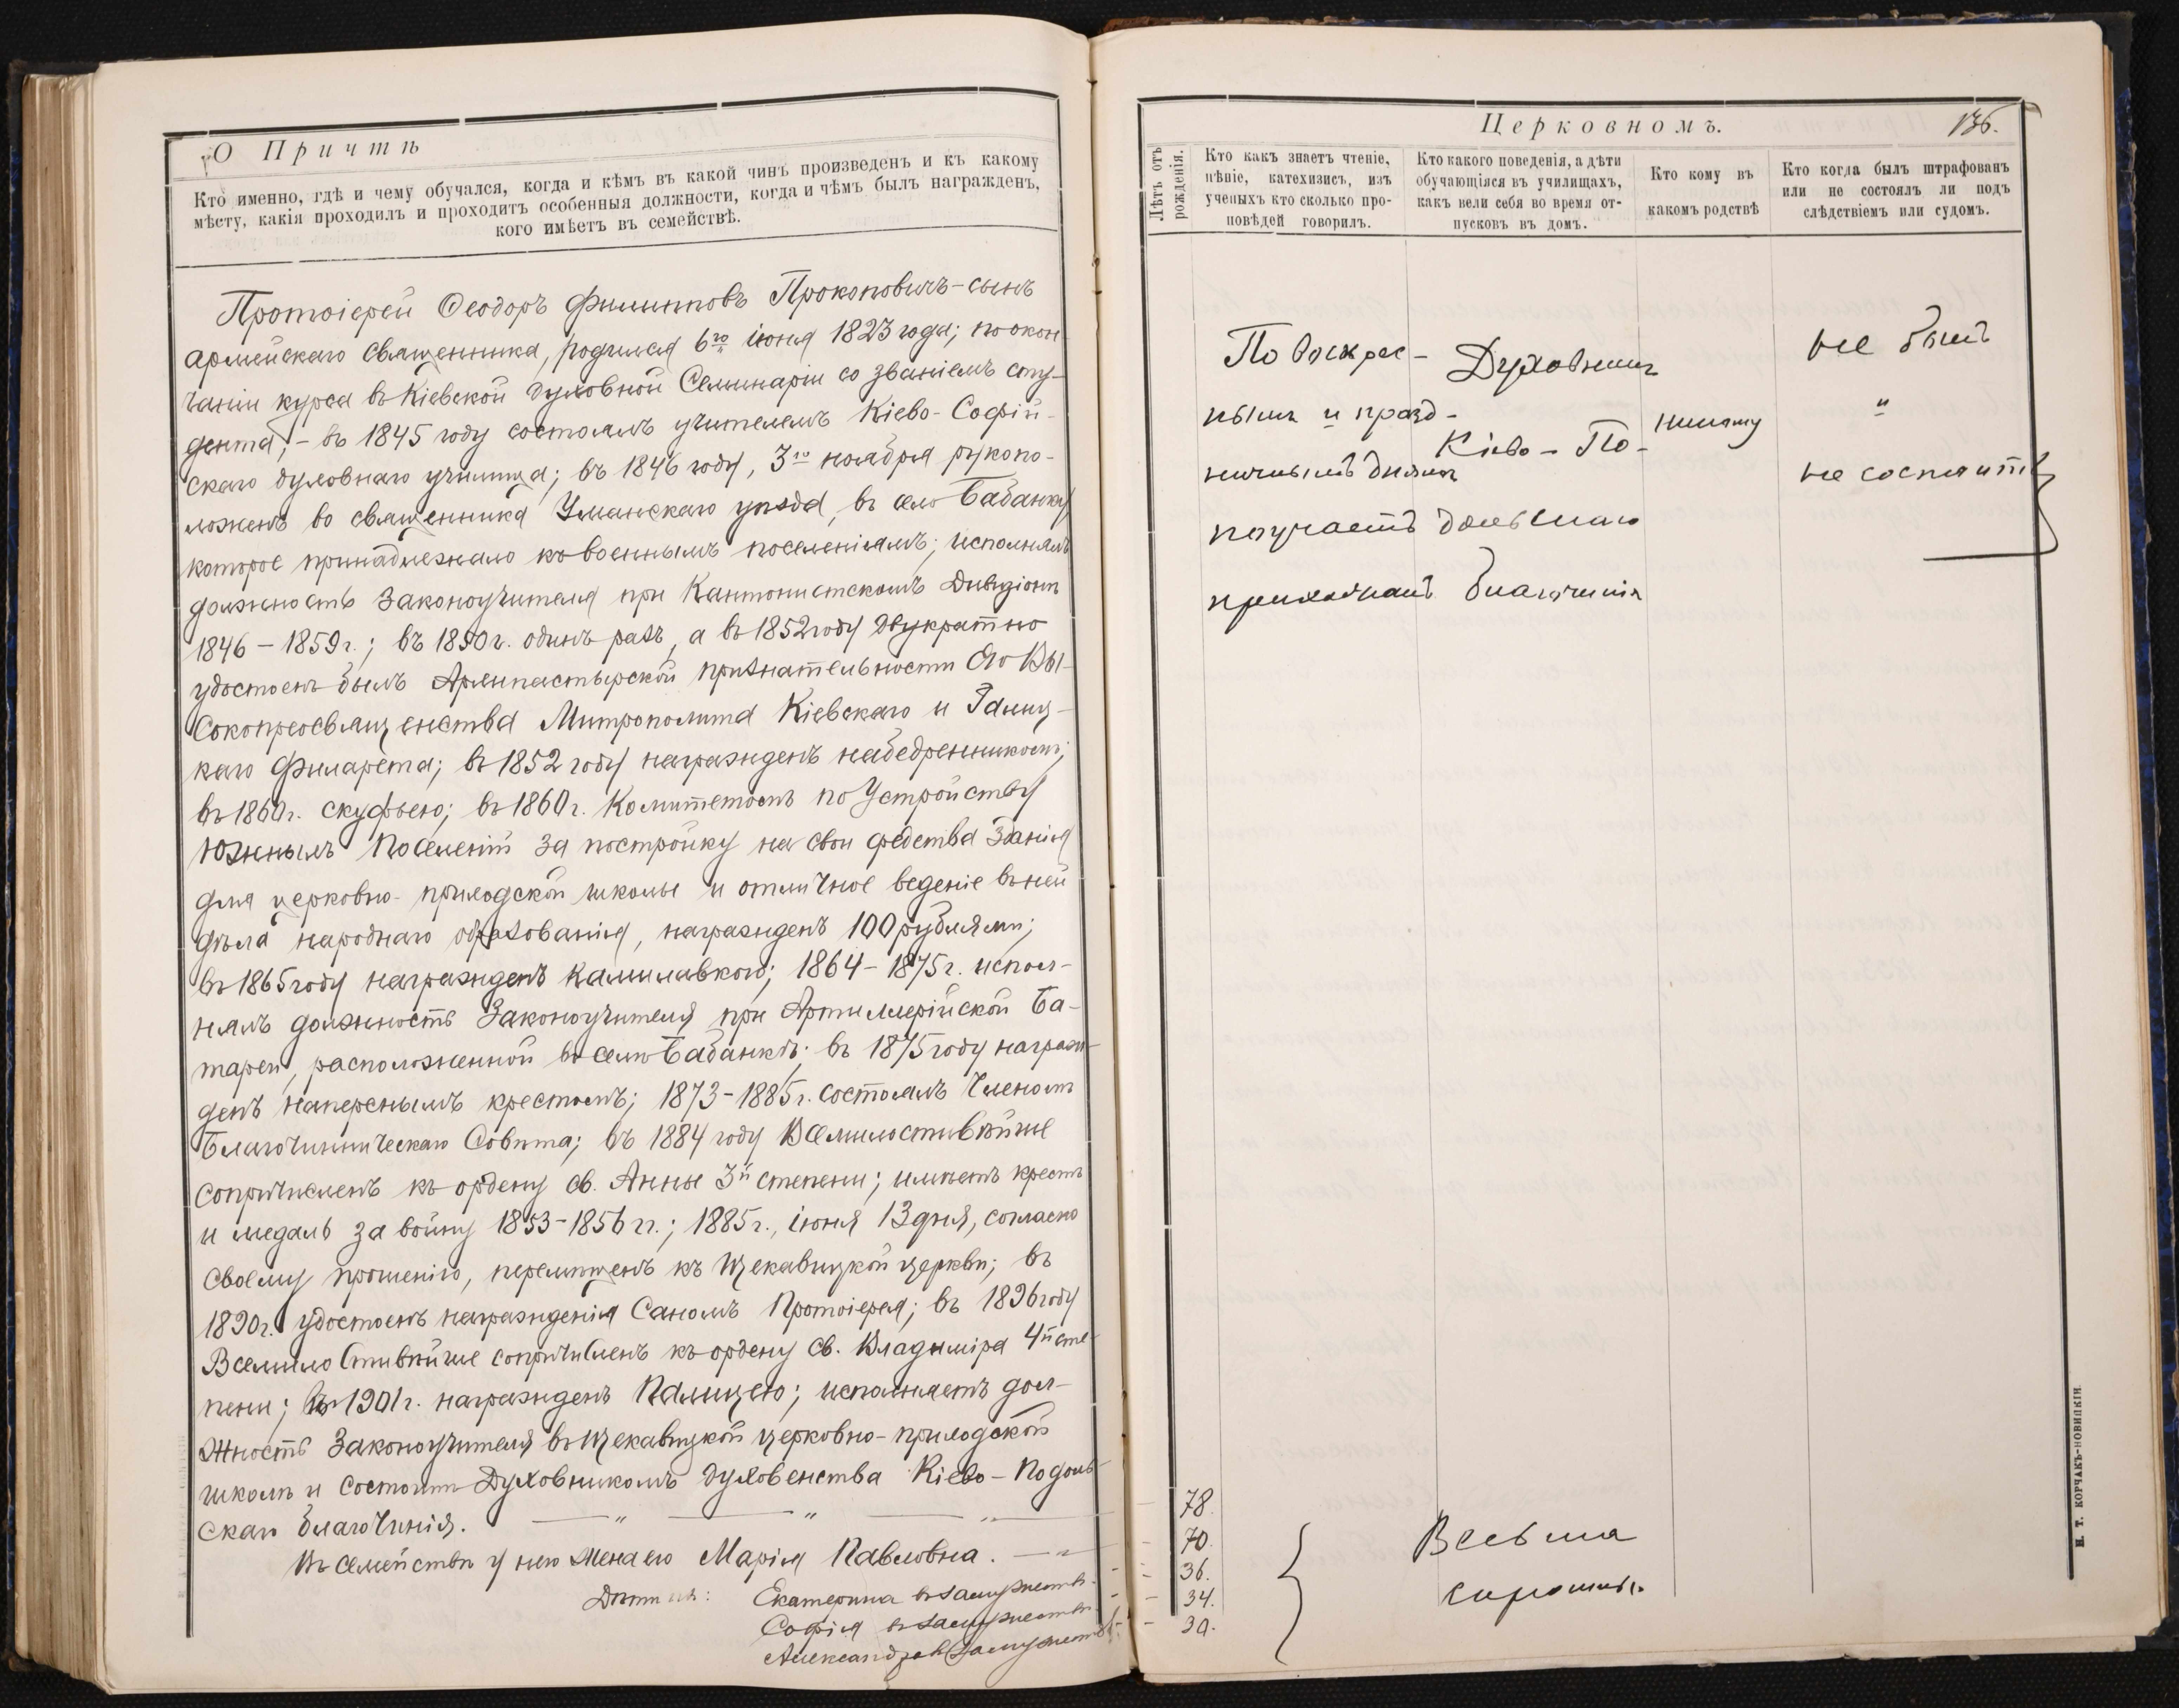 О Причтѣ
Кто именно, гдѣ и чему обучался, когда и кѣмъ въ какой чинъ произведенъ и къ какому
мѣсту, какія проходилъ и проходитъ особенныя должности, когда и чѣмъ былъ награжденъ,
кого имѣетъ въ семействѣ.
Протоіерей Ѳеодоръ Филипповъ Прокоповичъ-сынъ
армейскаго священника, родился 6го іюня 1823 года; по окон-
чаніи курса въ Кіевской духовной Семинаріи со званіемъ сту-
дента, - въ 1845 году состоялъ учителемъ Кіево-Софій-
скаго духовнаго училища; въ 1846 году, 3го ноября рукопо-
ложенъ во священника Уманскаго уѣзда, въ село Бабанку
которое принадлежало къ военнымъ поселеніямъ; исполнялъ
должность Законоучителя при Кантонистскомъ Дивизіонѣ
1846-1859г.; въ 1850г. одинъ разъ, а въ 1852 году двукратно
удостоенъ былъ Архипастырской признательности Его Вы-
сокопреосвященства Митрополита Кіевскаго и Галиц-
каго Филарета; въ 1852 году награжденъ набедренникомъ;
въ 1860г. скуфьею; въ 1860г. Комитетомъ по Устройству
Южныхъ Поселеній за постройку на свои средства Зданія
для церковно-приходской школы и отличное веденіе въ ней
дѣла народнаго образованія, награжденъ 100 рублями;
въ 1865 году награжденъ камилавкою; 1864-1875г. испол-
нялъ должность Законоучителя при Артиллерійской Ба-
тареи, расположенной въ селѣ Бабанкѣ; въ 1875 году награж-
денъ наперснымъ крестомъ; 1873-1885г. состоялъ Членомъ
Благочинническаго Совѣта; въ 1884 году Всемилостивѣйше
сопричисленъ къ ордену св. Анны 3й степени; имѣетъ крестъ
и медаль за войну 1853-1856 гг.; 1885г., іюня 13 дня, согласно
своему прошенію, перемѣщенъ къ Щекавицкой церкви; въ
1890г. удостоенъ награжденія Саномъ Протоіерея; въ 1896 году
Всемилостивѣйше сопричисленъ къ ордену Св. Владиміра 4й сте-
пени; въ 1901г. награжденъ Палицею; исполняетъ дол-
жность Законоучителя въ Щекавицкой церковно-приходской
школѣ и состоитъ Духовникомъ духовенства Кіево-Подоль-
скаго благочинія. — " — " — " —
Въ семействѣ у него Жена его Марія Павловна. — " —
Дѣти ихъ: Екатерина въ замужествѣ.
Софія въ замужествѣ.
Александра въ замужествѣ.
Церковномъ. 136.
Лѣтъ отъ рожденія.
Кто какъ знаетъ чтеніе,
пѣніе, катехизисъ, изъ
ученыхъ кто сколько про-
повѣдей говорилъ.
Кто какого поведенія, а дѣти
обучающіяся въ училищахъ,
какъ вели себя во время от-
пусковъ въ домъ.
Кто кому въ
какомъ родствѣ
Кто когда былъ штрафованъ
или не состоялъ ли подъ
слѣдствіемъ или судомъ.
По воскрес-
нымъ и празд-
ничнымъ днямъ
поучаетъ
прихожанъ
Духовникъ
Кіево-По-
дольскаго
благочинія
никому
не былъ
и
не состоитъ
78.
70.
36.
34.
30.
Весьма
хорошаго
Н. Т. КОРЧАКЪ-НОВИЦКІЙ